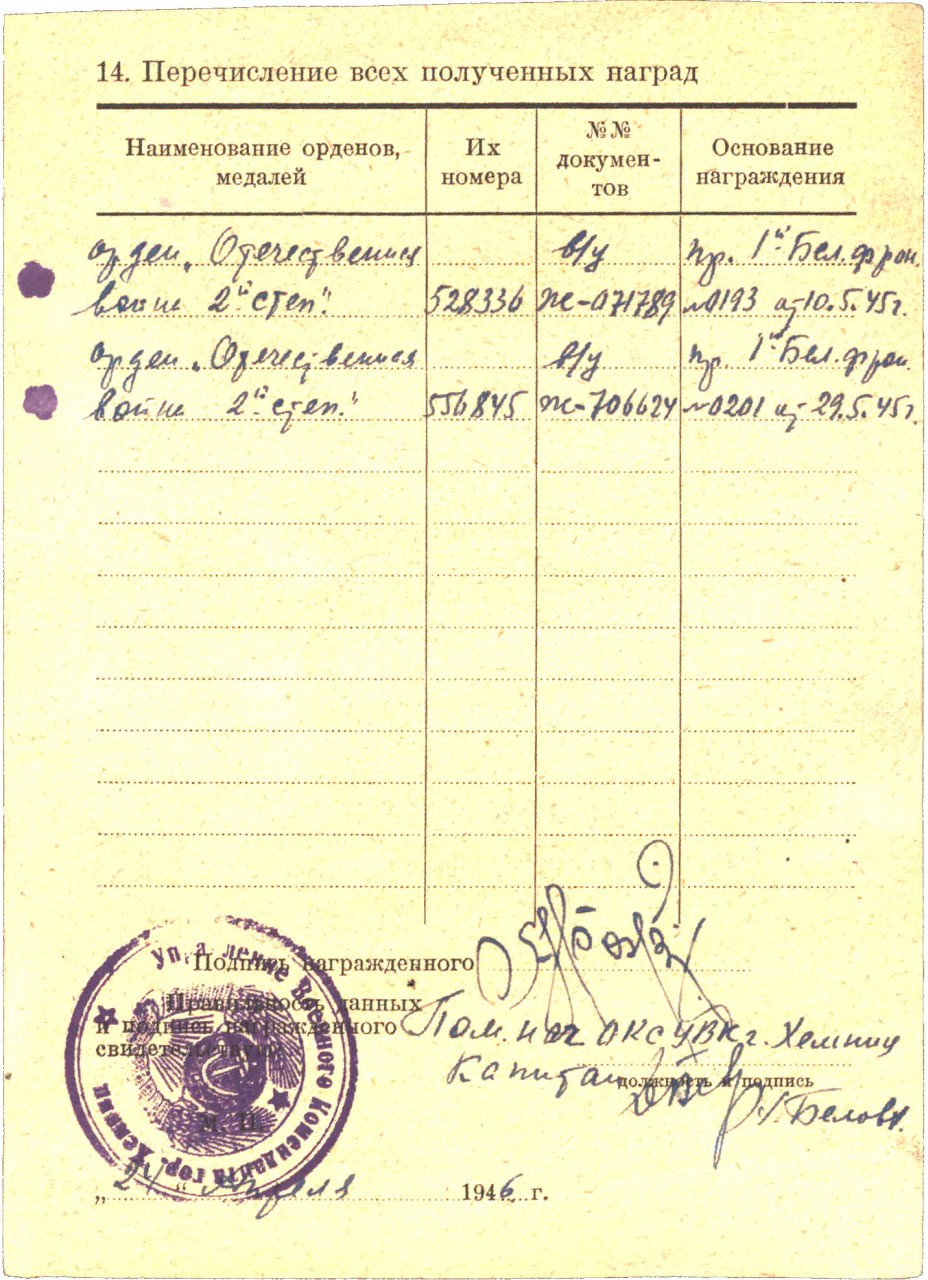 14. Перечисление всех полученных наград
Наименование орденов, медалей
Их номера
№№ докумен-тов
Основание награждения
орден „Отечественная в/у пр. 1й Бел. фрон.
война 2й степ." 528336 Ж-071789 №0193 от 10.5.45г.
орден „Отечественная в/у пр. 1й Бел. фрон.
война 2й степ." 556845 Ж-706624 №0201 от 29.5.45г.
Подпись награжденного
Правильность данных
и подпись награжденного
свидетельствую
Пом. нач ОКС УВК г. Хемниц
Капитан
должность и подпись
/Белов/.
М. П.
Управление Военного Коменданта гор. Хемниц
„24" Апреля 1946 г.